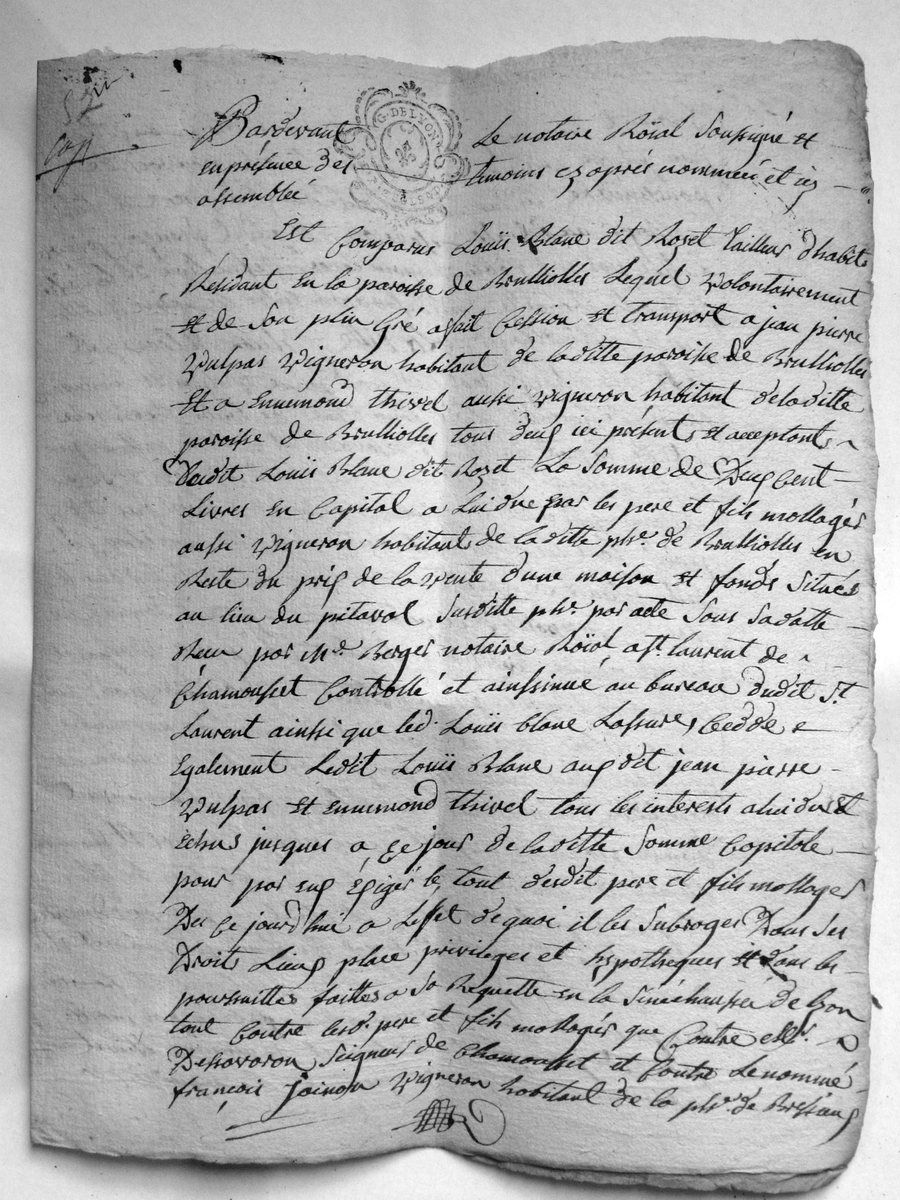 G. DE LYON
Pardevant Le notaire Roïal Soussigné et
en présence des temoins cy aprés nommeé et icy
assemblée
Est Comparus Louïs Blanc dit Rozet Tailleur d'habits
Résidant En la paroisse de Brulliolles Lequel volontairement
et de Son plein Gré a fait Cession et transport a jean pierre
Vulpas vigneron habitant de laditte paroisse de Brulliolles
Et a Ennemond thivel aussi vigneron habitant de laditte
paroisse de Brulliolles tous deux ici présents et acceptants
dudit Louïs Blanc dit Rozet La Somme de Deux Cent
Livres en Capital a Lui due par les pere et fils mollagés
aussi vigneron habitants de laditte phe. de Brulliolles en
Reste du prix de la vente d'une maison et fonds Situés
au lieu du pitaval Susditte phe par acte Sous Sa datte
Recu par Me. Berger notaire Roïal a St. laurent de
Chamousset Controllé et ainssinué au bureau dudit St.
Laurent ainsi que led. Louïs blanc L'assure, Cedde
Egalement Ledit Louïs Blanc aux dit jean pierre
Vulpas et ennemond thivel tous les interests a lui dus et
Echus jusques a ce jour de laditte Somme Capitale
pour par eux Exiger le tout desdit pere et fils mollages
Des ce jourd'hui a L'effet de quoi il les Subroges Dans Ses
Droits Lieux place privileges et hypotheques et dans les
poursuittes faittes a Sa Requette en la Sénéchaussée de Lyon
tout Contre lesd. pere et fils mollagés que Contre
Seigneur de Chamousset et Contre Le nommé
françois joinon vigneron habitant de la phe. de